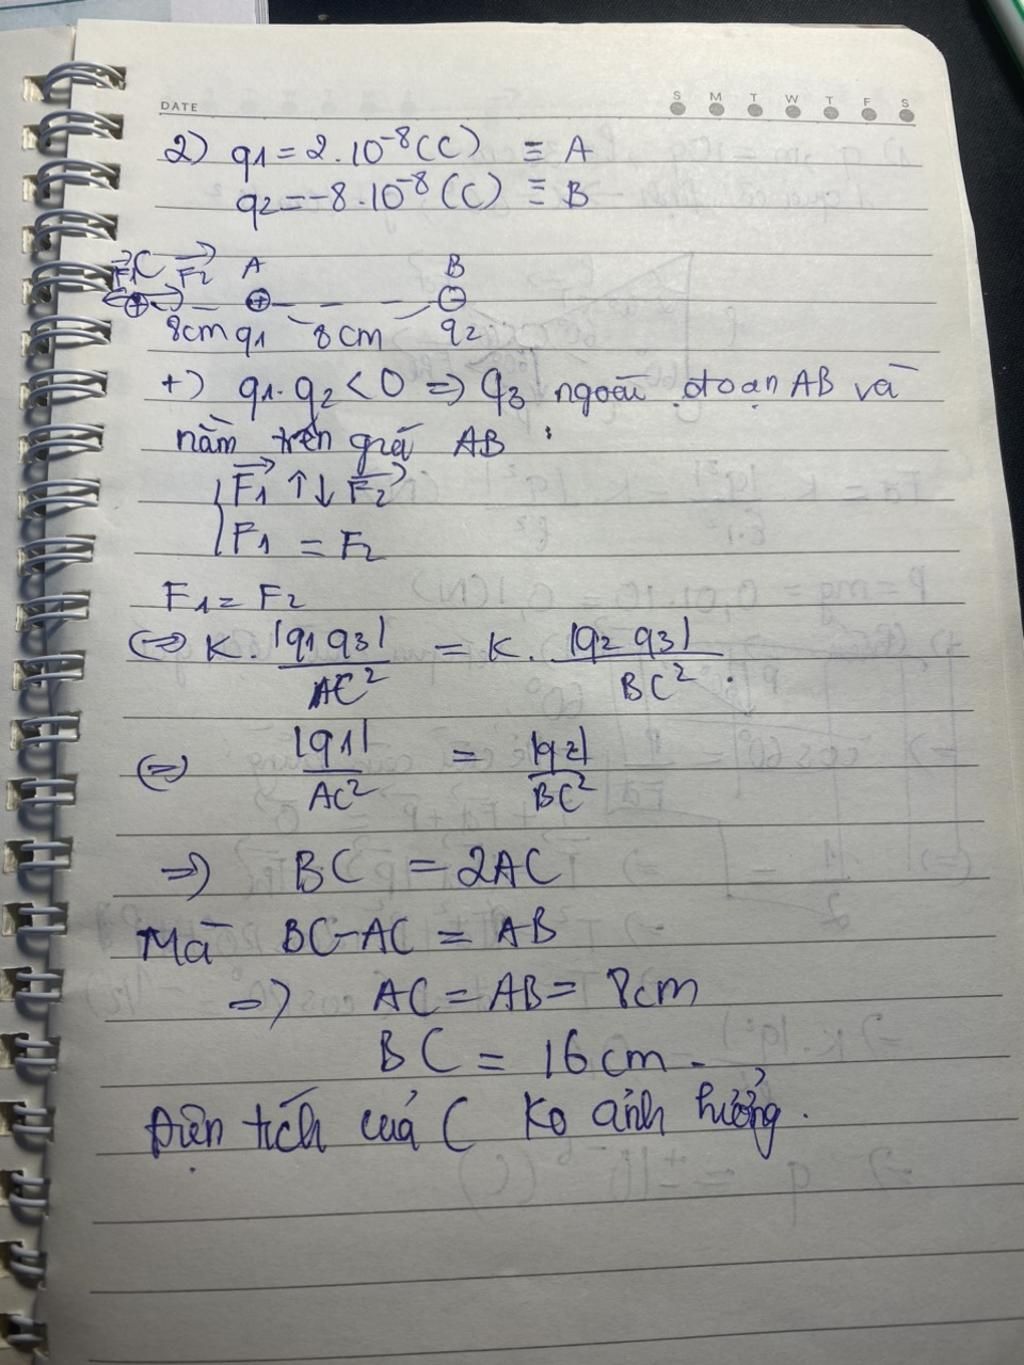 DATE
S M T W T F S
2) q1 = 2.10⁻⁸ (C) ≡ A
q2 = -8.10⁻⁸ (C) ≡ B
F1 C F2 A B
8cm q1 8cm q2
+) q1.q2 < 0 => q3 ngoài đoạn AB và
nằm trên giá AB :
F1 ↑↓ F2
F1 = F2
F1 = F2
<=> K. |q1 q3| / AC² = K. |q2 q3| / BC².
<=> |q1| / AC² = |q2| / BC²
=> BC = 2AC
Mà BC-AC = AB
=> AC = AB = 8cm
BC = 16cm.
Điện tích của C Ko ảnh hưởng.